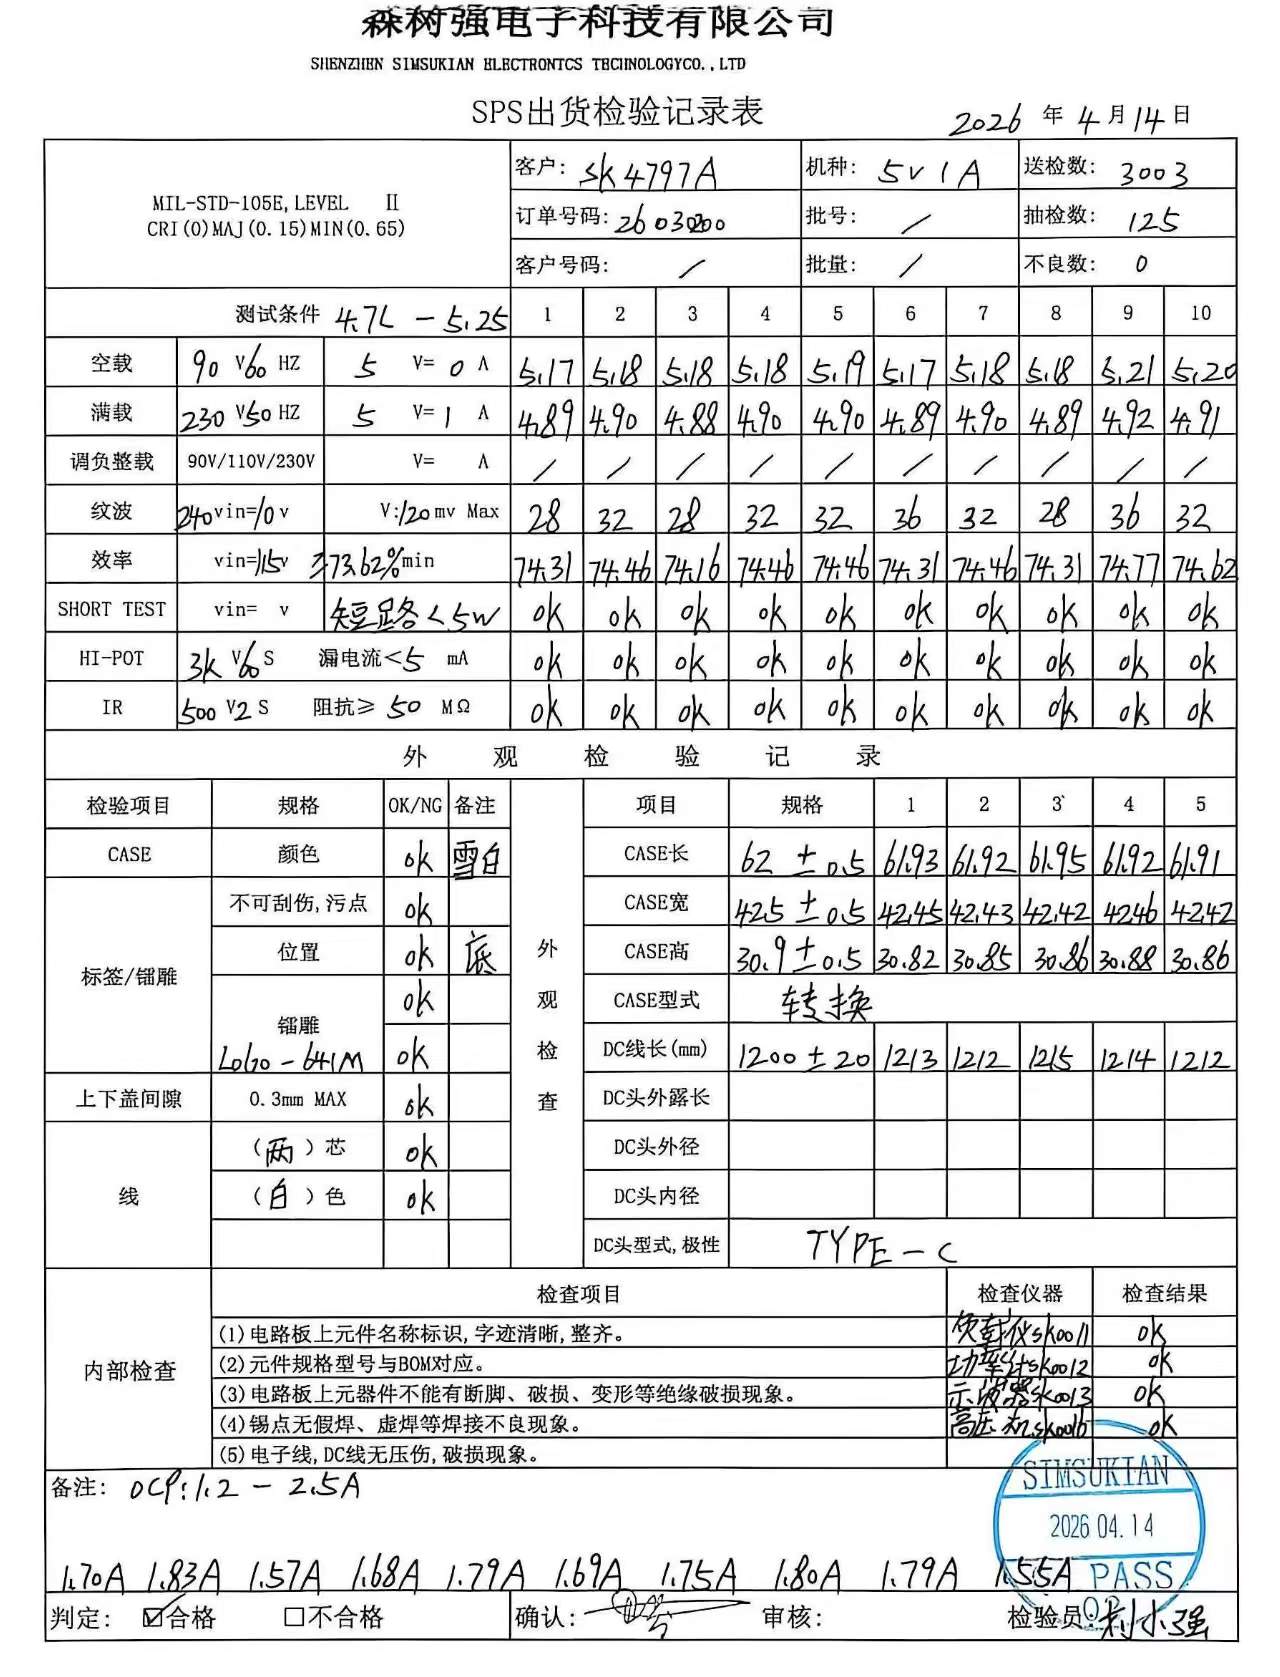 森树强电子科技有限公司
SHENZHEN SIMSUKIAN ELECTRONTCS TECHNOLOGYCO.,LTD
SPS出货检验记录表
2026 年 4 月 14 日
MIL-STD-105E, LEVEL Ⅱ
CRI(0)MAJ(0.15)MIN(0.65)
客户: SK4797A 机种: 5V1A 送检数: 3003
订单号码: 26030200 批号: / 抽检数: 125
客户号码: / 批量: / 不良数: 0
测试条件 4.7L - 5.25 1 2 3 4 5 6 7 8 9 10
空载 90 V 60 HZ 5 V= 0 A 5.17 5.18 5.18 5.18 5.19 5.17 5.18 5.18 5.21 5.20
满载 230 V 50 HZ 5 V= 1 A 4.89 4.90 4.88 4.90 4.90 4.89 4.90 4.89 4.92 4.91
调负整载 90V/110V/230V V= A / / / / / / / / / /
纹波 240 vin=10 v V:120 mv Max 28 32 28 32 32 36 32 28 36 32
效率 vin=115v ≥73.62% min 74.31 74.46 74.16 74.46 74.46 74.31 74.46 74.31 74.77 74.62
SHORT TEST vin= v 短路<5W ok ok ok ok ok ok ok ok ok ok
HI-POT 3K V 60 S 漏电流<5 mA ok ok ok ok ok ok ok ok ok ok
IR 500 V 2 S 阻抗≥ 50 MΩ ok ok ok ok ok ok ok ok ok ok
外 观 检 验 记 录
检验项目 规格 OK/NG 备注 项目 规格 1 2 3 4 5
CASE 颜色 ok 雪白 CASE长 62 ±0.5 61.93 61.92 61.95 61.92 61.91
不可刮伤,污点 ok CASE宽 42.5 ±0.5 42.45 42.43 42.42 42.46 42.42
标签/镭雕 位置 ok 底 外 CASE高 30.9±0.5 30.82 30.85 30.86 30.88 30.86
ok 观 CASE型式 转换
镭雕 LOGO-641M ok 检 DC线长(mm) 1200±20 1213 1212 1215 1214 1212
上下盖间隙 0.3mm MAX ok 查 DC头外露长
线 (两)芯 ok DC头外径
(白)色 ok DC头内径
DC头型式,极性 TYPE-C
内部检查 检查项目 检查仪器 检查结果
(1)电路板上元件名称标识,字迹清晰,整齐。 负载仪SK0011 ok
(2)元件规格型号与BOM对应。 功率计SK0012 ok
(3)电路板上元器件不能有断脚、破损、变形等绝缘破损现象。 示波器SK0013 ok
(4)锡点无假焊、虚焊等焊接不良现象。 高压机SK0016 ok
(5)电子线,DC线无压伤,破损现象。
备注: OCP:1.2 - 2.5A
SIMSUKIAN
2026.04.14
1.70A 1.83A 1.57A 1.68A 1.79A 1.69A 1.75A 1.80A 1.79A 1.55A
PASS
判定: ☑合格 □不合格 确认: 审核: 检验员: 刘小强